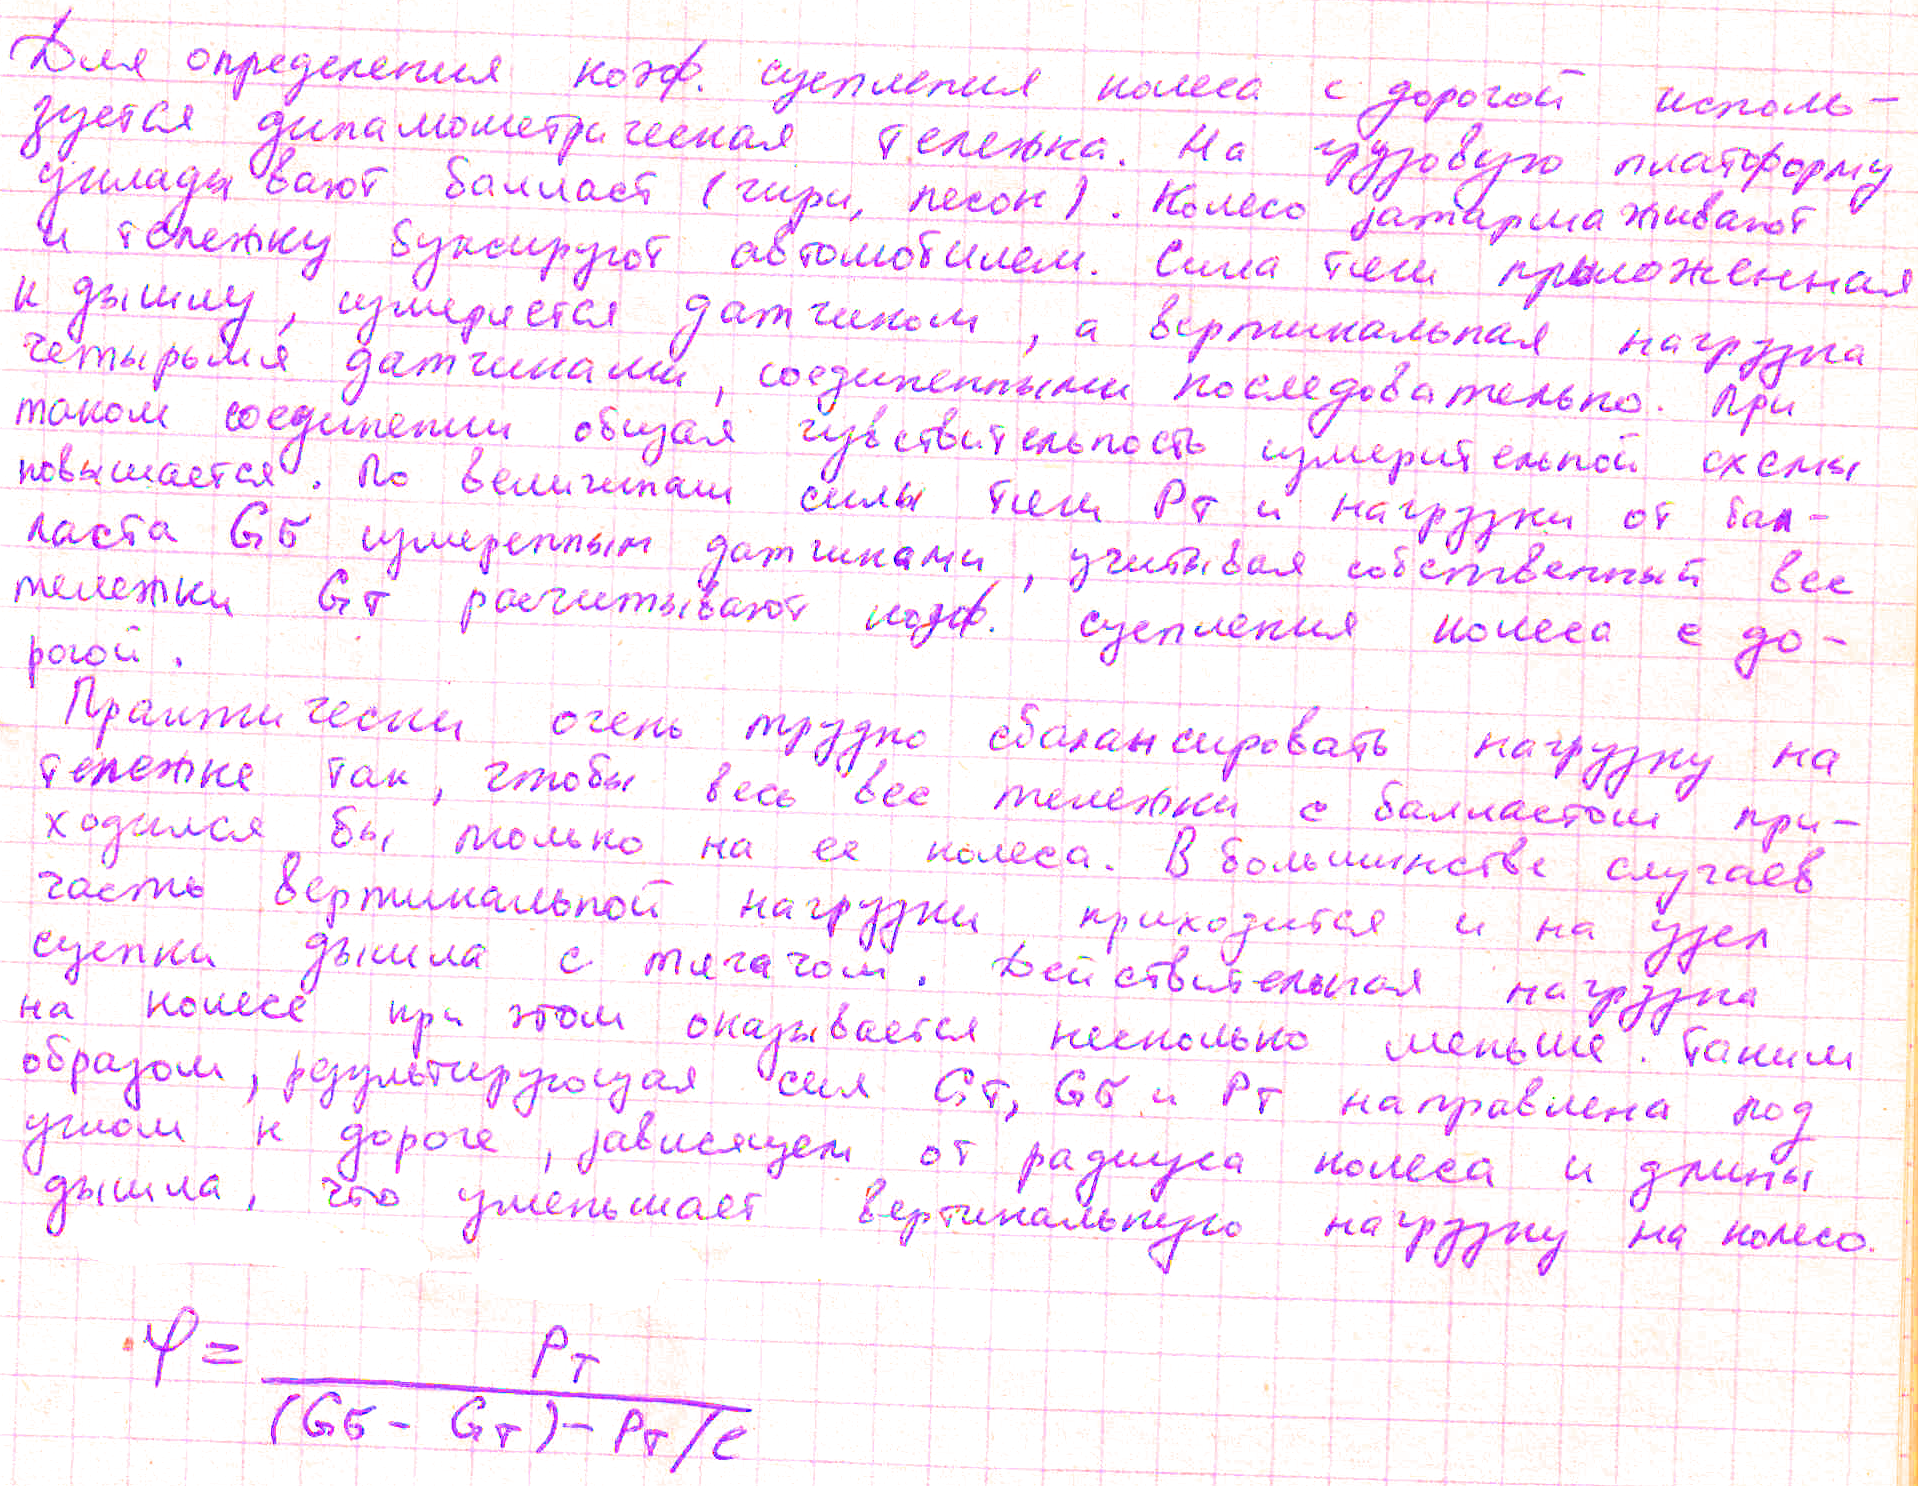 Для определения коэф. сцепления колеса с дорогой исполь-
зуется динамометрическая тележка. На грузовую платформу
укладывают балласт (гири, песок). Колесо затармаживают
и тележку буксируют автомобилем. Сила тяги приложенная
к дышлу, измеряется датчиком, а вертикальная нагрузка
четырьмя датчиками, соединенными последовательно. При
таком соединении общая чувствительность измерительной схемы
повышается. По величинам силы тяги Pт и нагрузки от бал-
ласта Gб измеренным датчиками, учитывая собственный вес
тележки Gт расчитывают коэф. сцепления колеса с до-
рогой.
Практически очень трудно сбалансировать нагрузку на
тележке так, чтобы весь вес тележки с балластом при-
ходился бы только на ее колеса. В большинстве случаев
часть вертикальной нагрузки приходится и на узел
сцепки дышла с тягачом. Действительная нагрузка
на колесе при этом оказывается несколько меньше. Таким
образом, результирующая сил Gт, Gб и Pт направлена под
углом к дороге, зависящем от радиуса колеса и длины
дышла, что уменьшает вертикальную нагрузку на колесо.
φ = Pт
(Gб - Gт) - Pт/l